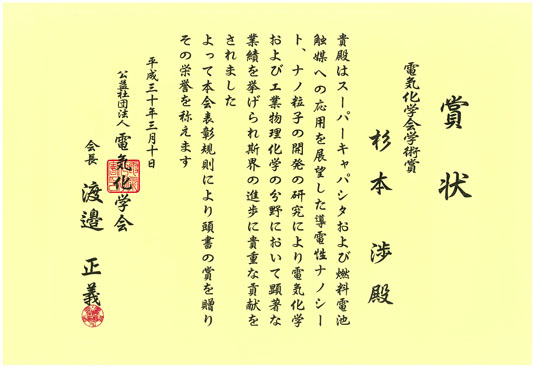 賞状
電気化学会学術賞
杉本 渉 殿
貴殿はスーパーキャパシタおよび燃料電池
触媒への応用を展望した導電性ナノシー
ト、ナノ粒子の開発の研究により電気化学
および工業物理化学の分野において顕著な
業績を挙げられ斯界の進歩に貴重な貢献を
されました
よって本会表彰規則により頭書の賞を贈り
その栄誉を称えます
平成三十年三月十日
公益社団法人 電気化学会
会長 渡邉 正義